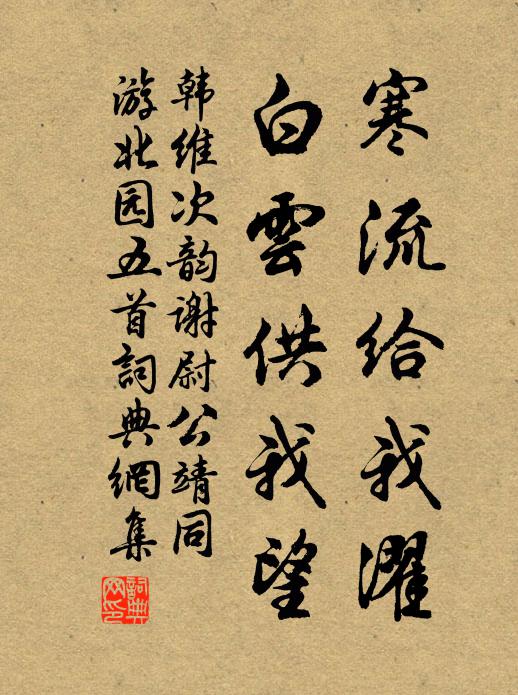 寒流给我濯
白雲供我望
韩维次韵谢尉公靖同
游北园五首詞典網集
詞典网印